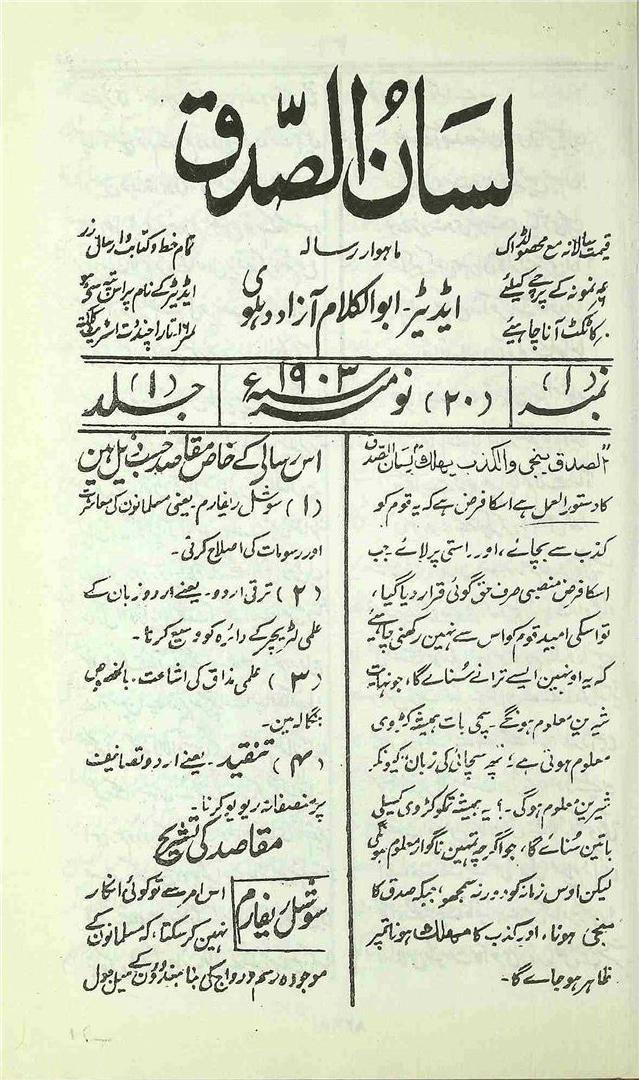 لسان الصّدق
قیمت سالانہ مع محصولڈاک
نمونہ کے پرچے کیلئے
کا ٹکٹ آنا چاہیئے
ماہوار رسالہ
ایڈیٹر۔ ابوالکلام آزاد دہلوی
تمام خط و کتابت و ارسالِ زر
ایڈیٹر کے نام پر اس پتہ سے ہو
تارا چند دت اسٹریٹ کلکتہ
نمبر (۱)
(۲۰) نومبر سنہ ۱۹۰۳ء
جلد (۱)
"الصدق ینجی والکذب یھلک" لسان الصدق
کا دستور العمل ہے اسکا فرض ہے کہ یہ قوم کو
کذب سے بچائے، اور راستی پر لائے جب
اسکا فرض منصبی صرف حق گوئی قرار دیا گیا،
تو اسکی امید قوم کو اس سے نہین رکھنی چاہیئے
کہ یہ اونہین ایسے ترانے سُنائے گا، جو نہایت
شیرین معلوم ہونگے۔ سچی بات ہمیشہ کڑوی
معلوم ہوتی ہے؛ پھر سچائی کی زبان کیونکر
شیرین معلوم ہوگی۔؟ یہ ہمیشہ تمکو کڑوی کسیلی
باتین سُنائے گا، جو اگرچہ تمہین ناگوار معلوم ہونگی
لیکن اوس زمانہ کو دور نہ سمجھو، جبکہ صدق کا
منجی ہونا، اور کذب کا مھلک ہونا تمپر
ظاہر ہو جائے گا۔
اس رسالی کے خاص مقاصد حسب ذیل ہین
(۱) سوشل ریفارم۔ یعنی مسلمانون کی معاشرت
اور رسومات کی اصلاح کرنی۔
(۲) ترقی اردو۔ یعنے اردو زبان کے
علمی لٹریچر کے دائرہ کو وسیع کرنا۔
(۳) علمی مذاق کی اشاعت۔ بالخصوص
بنگالہ مین۔
(۴) تنقید۔ یعنے اردو تصانیف
پر منصفانہ ریویو کرنا۔
مقاصد کی تشریح
سوشل ریفارم
اس امر سے تو کوئی انکار
نہین کر سکتا، کہ مسلمانون کے
موجودہ رسم و رواج کی بنا ہندوؤن کے میل جول